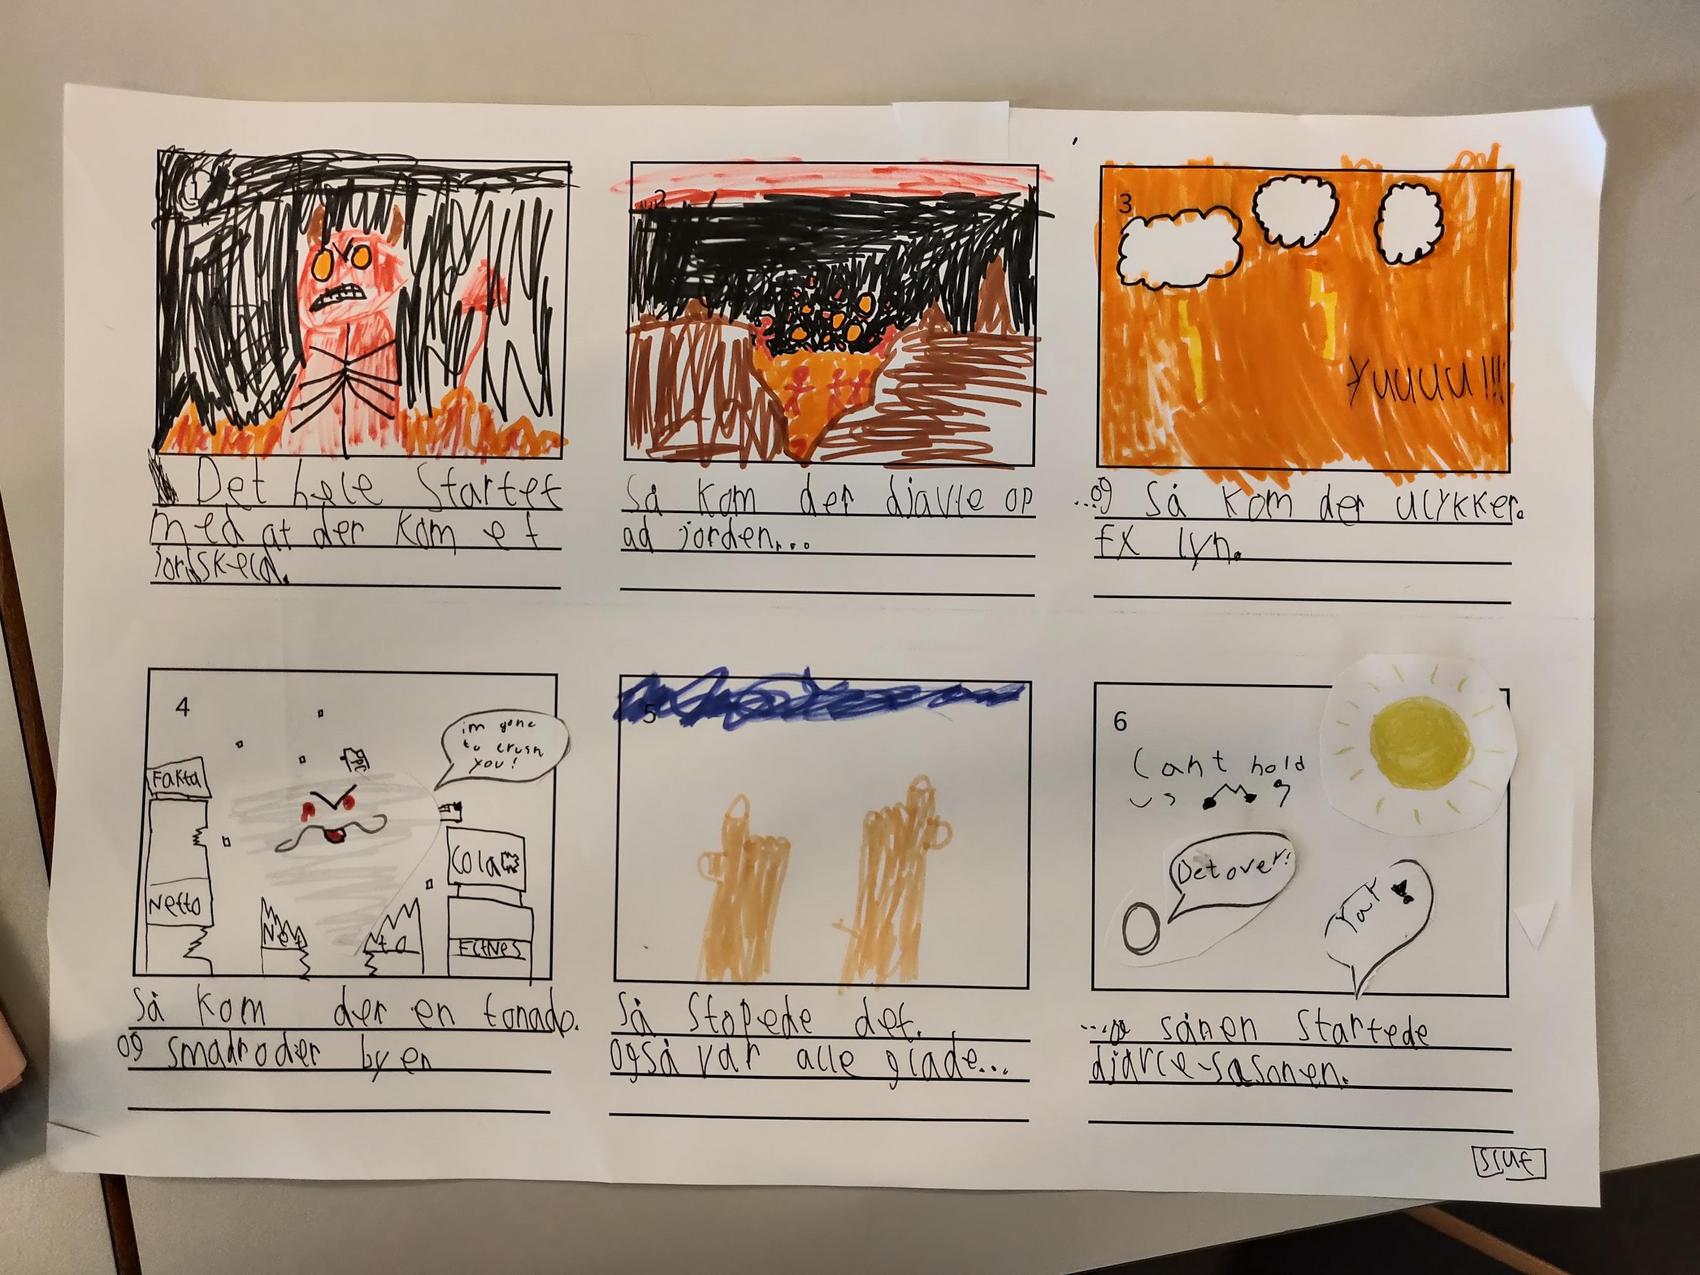 1
Det hele startet
med at der kom et
jordskeld.
2
Så kom der djavle op
ad jorden...
3
Yuuuu!!!
...og så kom der ulykker.
fx lyn.
4
im gone
to crush
you!
Fakta
Netto
Cola
Net
to
FITNES
Så kom der en tonado.
og smadroder byen
5
Så stopede det.
også var alle glade...
6
Cant hold
us
Det over!
... og sånen startede
djavle-sasonen.